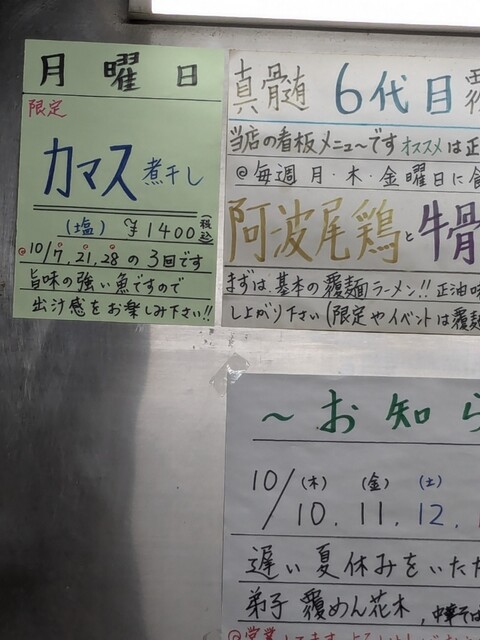 月曜日
限定
カマス煮干し
(塩) ¥1400(税込)
◎10/7.21.28の3回です
旨味の強い魚ですので
出汁感をお楽しみ下さい!!
真骨髄 6代目
当店の看板メニューです オススメは正
@毎週 月・木・金曜日に
阿波尾鶏と牛骨
まずは、基本の覆麺ラーメン!! 正油味
し上がり下さい(限定やイベントは覆麺
〜お知ら
10/10.(木) 11.(金) 12.(土)
遅い夏休みをいた
弟子 覆めん花木,中華そば